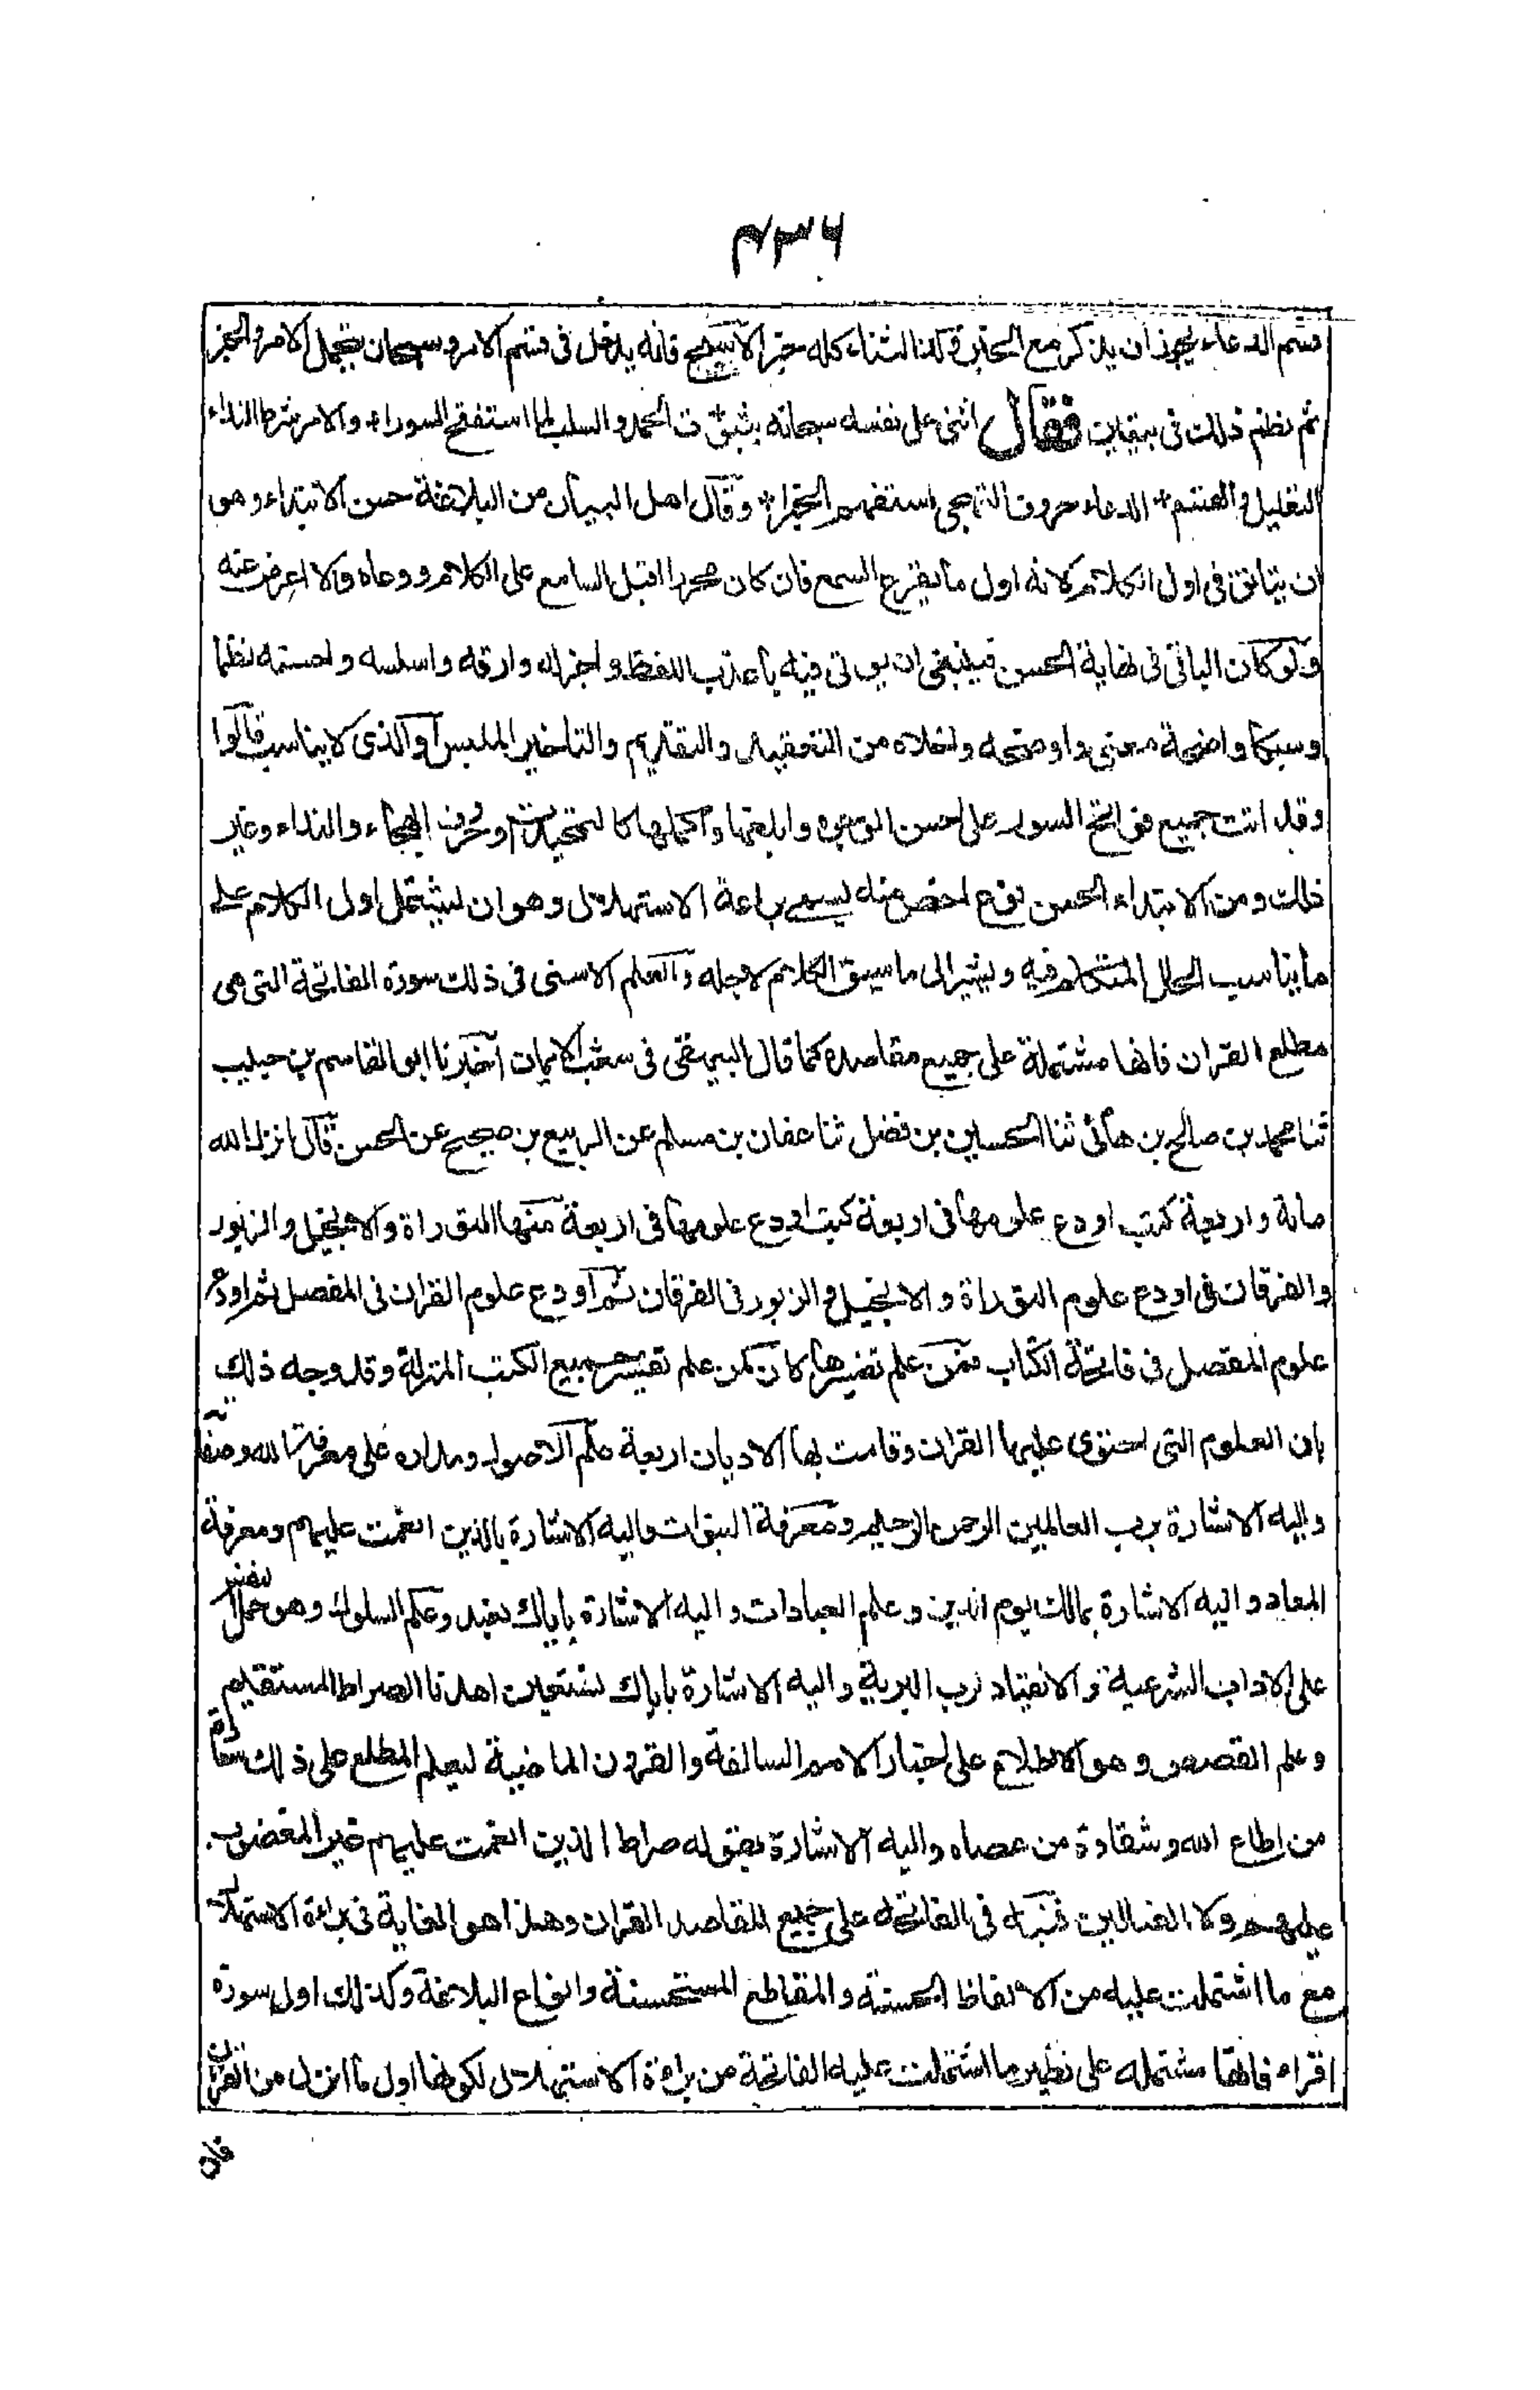 ۴۳۶
قسم الدعاء يجوز ان يذكر مع الخبر وكذا الثناء كله خبر الا سبح فانه يدخل في قسم الامر وسبحان يحتمل الامر والخبر
ثم نظم ذلك في بيتين فقال اثنى على نفسه سبحانه بثبوت الحمد والسلب لما استفتح السورا، والامر شرط النداء
التعليل والقسم* الدعاء حروف التهجى استفهم الخبرا* وقال اهل البيان من البلاغة حسن الابتداء وهو
ان يتانق في اول الكلام لانه اول ما يقرع السمع فان كان محررا اقبل السامع على الكلام ووعاه والا اعرض عنه
ولو كان الباقى في نهاية الحسن فينبغى ان يوتى فيه باعذب اللفظ واجزله وارقه واسلسه واحسنه نظما
وسبكا واضحة معنى واوضحه واخلاه من التعقيد والتقديم والتاخير الملبس او الذى لا يناسب قالوا
وقد اتت جميع فواتح السور على احسن الوجوه وابلغها واكملها كالتحميدات وحروف الهجاء والنداء وغير
ذلك ومن الابتداء الحسن نوع اخص منه يسمى براعة الاستهلال وهو ان يشتمل اول الكلام على
ما يناسب الحال المتكلم فيه ويشير الى ما سيق الكلام لاجله والعلم الاسنى في ذلك سورة الفاتحة التى هى
مطلع القران فانها مشتملة على جميع مقاصده كما قال البيهقى في شعب الايمان اخبرنا ابو القاسم بن حبيب
ثنا محمد بن صالح بن هانى ثنا الحسين بن فضل ثنا عفان بن مسلم عن الربيع بن صبيح عن الحسن قال انزل الله
مائة واربعة كتب اودع علومها في اربعة كتب اودع علومها في اربعة منها التوراة والانجيل والزبور
والفرقان فى اودع علوم التوراة والانجيل والزبور في الفرقان ثم اودع علوم القران في المفصل ثم اودع
علوم المفصل في فاتحة الكتاب فمن علم تفسيرها كان كمن علم تفسير جميع الكتب المنزلة وقد وجه ذلك
بان العلوم التى احتوى عليها القران وقامت بها الاديان اربعة علم الاصول ومداره على معرفة الله وصفاته
واليه الاشارة برب العالمين الرحمن الرحيم ومعرفة النبوات واليه الاشارة بالذين انعمت عليهم ومعرفة
المعاد واليه الاشارة بمالك يوم الدين وعلم العبادات واليه الاشارة باياك نعبد وعلم السلوك وهو حمل النفس
على الاداب الشرعية والانقياد لرب البرية واليه الاشارة باياك نستعين اهدنا الصراط المستقيم
وعلم القصص وهو الاطلاع على اخبار الامم السالفة والقرون الماضية ليعلم المطلع على ذلك سعادة
من اطاع الله وشقاوة من عصاه واليه الاشارة بقوله صراط الذين انعمت عليهم غير المغضوب
عليهم ولا الضالين فنبه في الفاتحه على جميع المقاصد القران وهذا هو الغاية في براعة الاستهلال
مع ما اشتملت عليه من الالفاظ الحسنة والمقاطع المستحسنة وانواع البلاغة وكذلك اول سورة
اقراء فانها مشتمله على نظير ما اشتملت عليه الفاتحة من براعة الاستهلال لكونها اول ما انزل من القران
فان